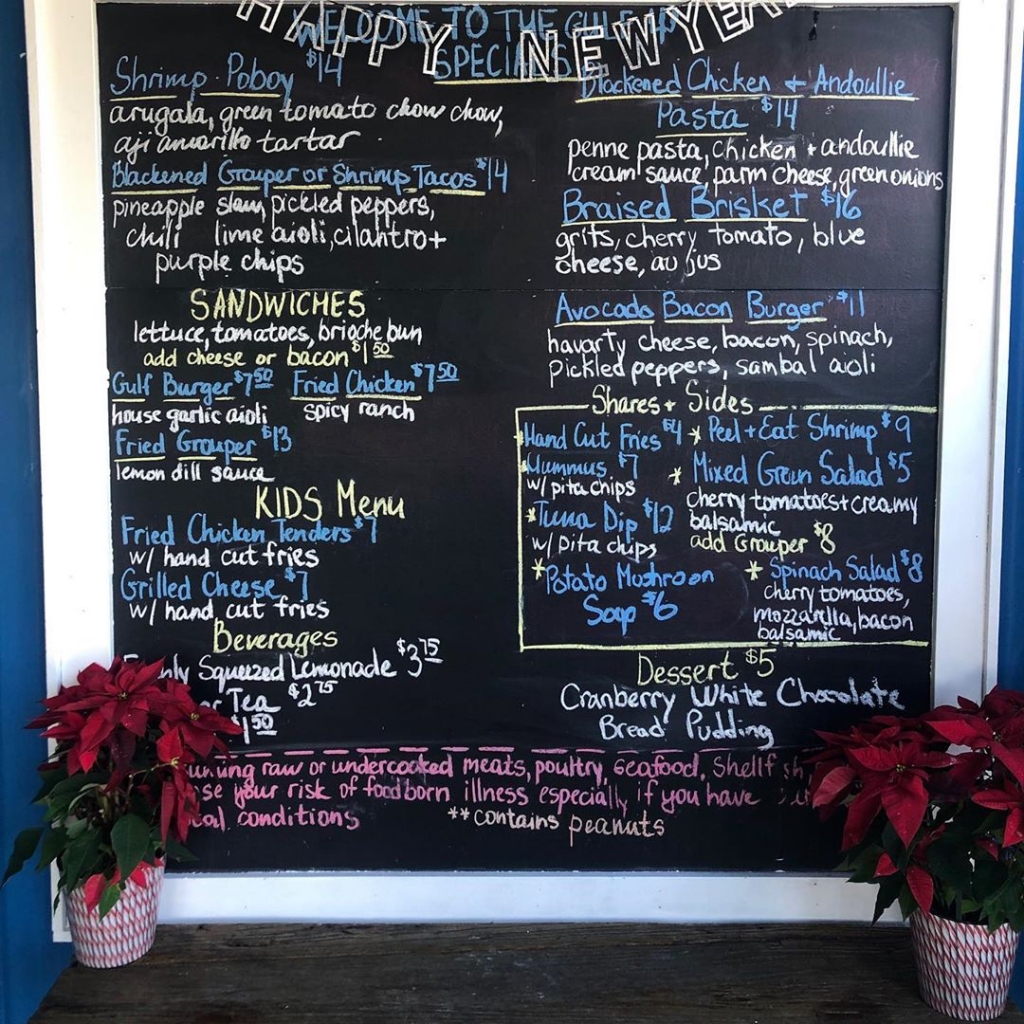 HAPPY NEW YEAR
WELCOME TO THE GULF
SPECIALS
Shrimp Poboy $14
arugala, green tomato chow chow,
aji amarillo tartar
Blackened Grouper or Shrimp Tacos $14
pineapple slaw, pickled peppers,
chili lime aioli, cilantro +
purple chips
Blackened Chicken + Andoullie
Pasta $14
penne pasta, chicken + andoullie
cream sauce, parm cheese, green onions
Braised Brisket $16
grits, cherry tomato, blue
cheese, au jus
SANDWICHES
lettuce, tomatoes, brioche bun
add cheese or bacon $1.50
Gulf Burger $7.50 Fried Chicken $7.50
house garlic aioli spicy ranch
Fried Grouper $13
lemon dill sauce
KIDS Menu
Fried Chicken Tenders $7
w/ hand cut fries
Grilled Cheese $7
w/ hand cut fries
Beverages
Squeezed Lemonade $3.75
or Tea $2.75
$1.50
Avocado Bacon Burger $11
havarty cheese, bacon, spinach,
Pickled peppers, sambal aioli
Shares + Sides
*Hand Cut Fries $4
*Hummus $7
w/ pita chips
*Tuna Dip $12
w/ pita chips
*Potato Mushroon
Soup $6
*Peel + Eat Shrimp $9
*Mixed Green Salad $5
cherry tomatoes + creamy
balsamic
add Grouper $8
*Spinach Salad $8
cherry tomatoes,
mozzarella, bacon
balsamic
Dessert $5
Cranberry White Chocolate
Bread Pudding
raw or undercooked meats, poultry, seafood, Shellfish,
your risk of foodborn illness especially if you have
conditions **contains peanuts